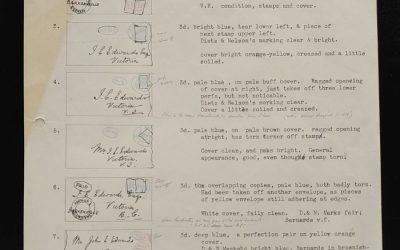 V.F. condition, stamps and cover.
3.
5d. bright blue, tear lower left, & piece of
next stamp upper left.
Dietz & Nelson's marking clear & bright.
cover bright orange-yellow, creased and a little
soiled.
J.E. Edwards Esq
Victoria
4.
5d. pale blue, on pale buff cover. Ragged opening
of cover at right, just takes off three lower
perfs, but not noticeable.
Dietz & Nelson's marking clear.
Cover a little soiled and creased.
J.E. Edwards
Victoria
V.I.
5.
5d. pale blue, on pale brown cover. ragged opening
atright, has torn corner off stamp.
Cover clean, and pmks bright. General
appearance, good, even though stamp torn
Mr J.E. Edwards
Victoria
V.I.
6.
5d. two overlapping copies, pale blue, both badly torn.
Had been taken off another envelope, as pieces
of yellow envelope still adhering at edges.
White cover, faily clean. D&N Marks fair;
Barnards vf.
PAID
J.E. Edwards Esq
Victoria,
B.C.
7.
5d. deep blue, a perfect pair on yellow orange
cover.
D&N Markabs bright blue. Barnards in brownish-
Mr. John E. Edwards